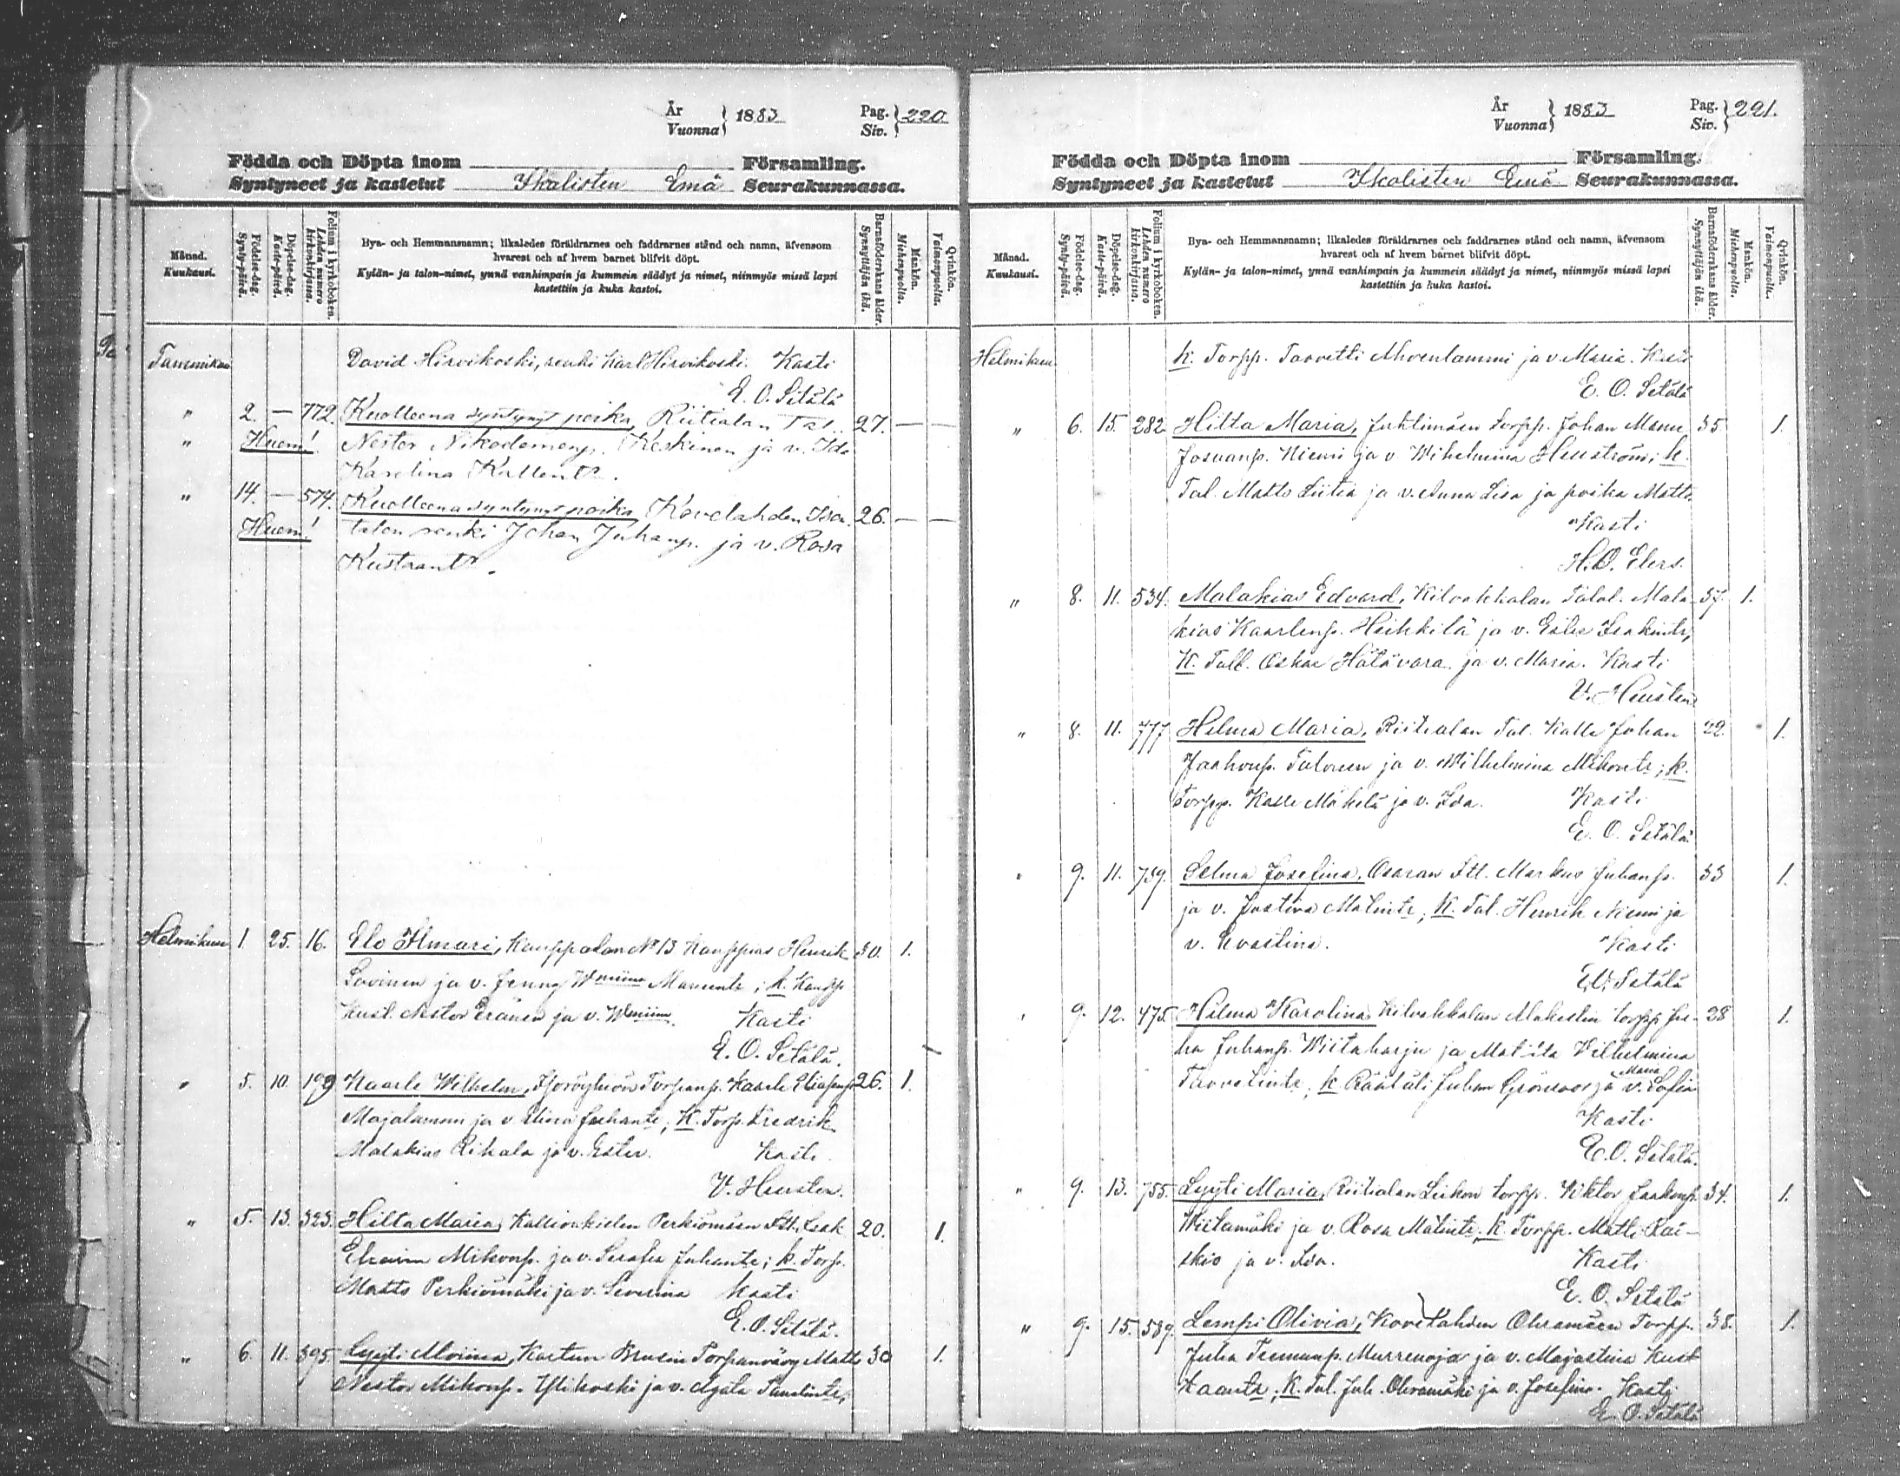 År
Vuonna } 1883
Pag.
Siv. } 220
Födda och Döpta inom Församling.
Syntyneet ja kastetut Ikalisten Emä Seurakunnassa.
Månad.
Kuukausi.
Födelse-dag.
Synty-päivä.
Döpelse-dag.
Kaste-päivä.
Folium i kyrkoboken.
Lehden numero kirkonkirjassa.
Bya- och Hemmansnamn; likaledes föräldrarnes och faddrarnes stånd och namn, äfvensom
hvarest och af hvem barnet blifvit döpt.
Kylän- ja talon-nimet, ynnä vanhimpain ja kummein säädyt ja nimet, niinmyös missä lapsi
kastettiin ja kuka kastoi.
Barnaföderskans ålder.
Synnyttäjän ikä.
Mankön.
Miehenpuolta.
Qvinkön.
Vaimonpuolta.
Tammikuu David Hirvikoski, renki Karl Hirvikoski. Kasti
E. O. Setälä
" 2. — 772. Kuolleena syntynyt poika, Riitialan Tal. 27. — —
" Huom! Nestor Nikodemusp. Keskinen ja v. Ida
Karolina Kallent.
" 14. — 574. Kuolleena syntynyt poika, Kovelahden Iso- 26. — —
Huom! talon renki Johan Juhanp. ja v. Rosa
Kustaant.
Helmikuu 1 25. 16. Elo Ilmari, Kauppalan No 13 Kauppias Henrik 30. 1.
Lovinen ja v. Jenny Wmiina Manuente; k. Kaupp
Kust. Nestor Eränen ja v. Wmiina. Kasti
E. O. Setälä.
" 5. 10. 199 Kaarle Wilhelm, Torpanp. Kaarle Eliasp. 26. 1.
Majalammi ja v. Elina Juhante; K. Torp. Fredrik
Malakias Rihala ja v. Ester. Kasti
V. Heusten.
" 5. 13. 323. Hilta Maria, Kallionkielen Perkiömäen Itl. Isak 20. 1.
Efraim Mikonp. ja v. Serafia Juhante; k. Torp.
Matts Perkiömäki ja v. Severina Kasti
E. O. Setälä.
" 6. 11. 395. Lyyti Alviina, Kartun Torpanvävy Matts 30 1.
Nestor Mikonp. Ylikoski ja v. Agata Tanelinte,
År
Vuonna } 1883
Pag.
Siv. } 221.
Födda och Döpta inom Församling.
Syntyneet ja kastetut Ikalisten Emä Seurakunnassa.
Månad.
Kuukausi.
Födelse-dag.
Synty-päivä.
Döpelse-dag.
Kaste-päivä.
Folium i kyrkoboken.
Lehden numero kirkonkirjassa.
Bya- och Hemmansnamn; likaledes föräldrarnes och faddrarnes stånd och namn, äfvensom
hvarest och af hvem barnet blifvit döpt.
Kylän- ja talon-nimet, ynnä vanhimpain ja kummein säädyt ja nimet, niinmyös missä lapsi
kastettiin ja kuka kastoi.
Barnaföderskans ålder.
Synnyttäjän ikä.
Mankön.
Miehenpuolta.
Qvinkön.
Vaimonpuolta.
Helmikuu k. Torpp. Taavetti Ahvenlammi ja v. Maria. Kasti
E. O. Setälä
" 6. 15. 282 Hilta Maria, Juhtimäen Torpp. Johan Manu 35 1.
Josuanp. Niemi ja v. Wilhelmina Henström; k.
Tal. Matts Liitiä ja v. Anna Lisa ja poika Matts.
Kasti
H. O. Elers.
" 8. 11. 534. Malakias Edvard, Kilvakkalan Talol. Mala- 37. 1.
kias Kaarlenp. Heikkilä ja v. Ester Isakinte,
K. Tall. Oskar Hätävara ja v. Maria. Kasti
V. Heusten
" 8. 11. 777 Helma Maria, Riitialan Tal. Kalle Johan 22. 1.
Jaakonp. Talonen ja v. Wilhelmina Mikonte; k.
Torpp. Kalle Mäkelä ja v. Ida. Kasti
E. O. Setälä.
" 9. 11. 739. Selma Josefina, Osaran Itl. Markus Juhanp. 33 1.
ja v. Justina Matinte; k. Tal. Henrik Niemi ja
v. Kvastina. Kasti
E. O. Setälä
" 9. 12. 475. Hilma Karolina, Kilvakkalan Makeslin torpp. Ju- 28 1.
ha Juhanp. Wiitaharju ja Matilta Vilhelmina
Taavetinte; k. Räätäli Juhan Grönroos ja v. Maria Sofia
Kasti
E. O. Setälä.
" 9. 13. 755. Lyyti Maria, Riitialan Liikon torpp. Viktor Jaakonp. 34. 1.
Wiitamäki ja v. Rosa Matinte; k. Torpp. Matti Rai-
skio ja v. Ida. Kasti
E. O. Setälä
" 9. 15. 589. Lempi Olivia, Kovelahden Ohramäen Torpp. 38. 1.
Juha Teemunp. Murrenoja ja v. Majastina Kust-
taante; K. Tal. Juh. Ohramäki ja v. Josefina. Kasti
E. O. Setälä